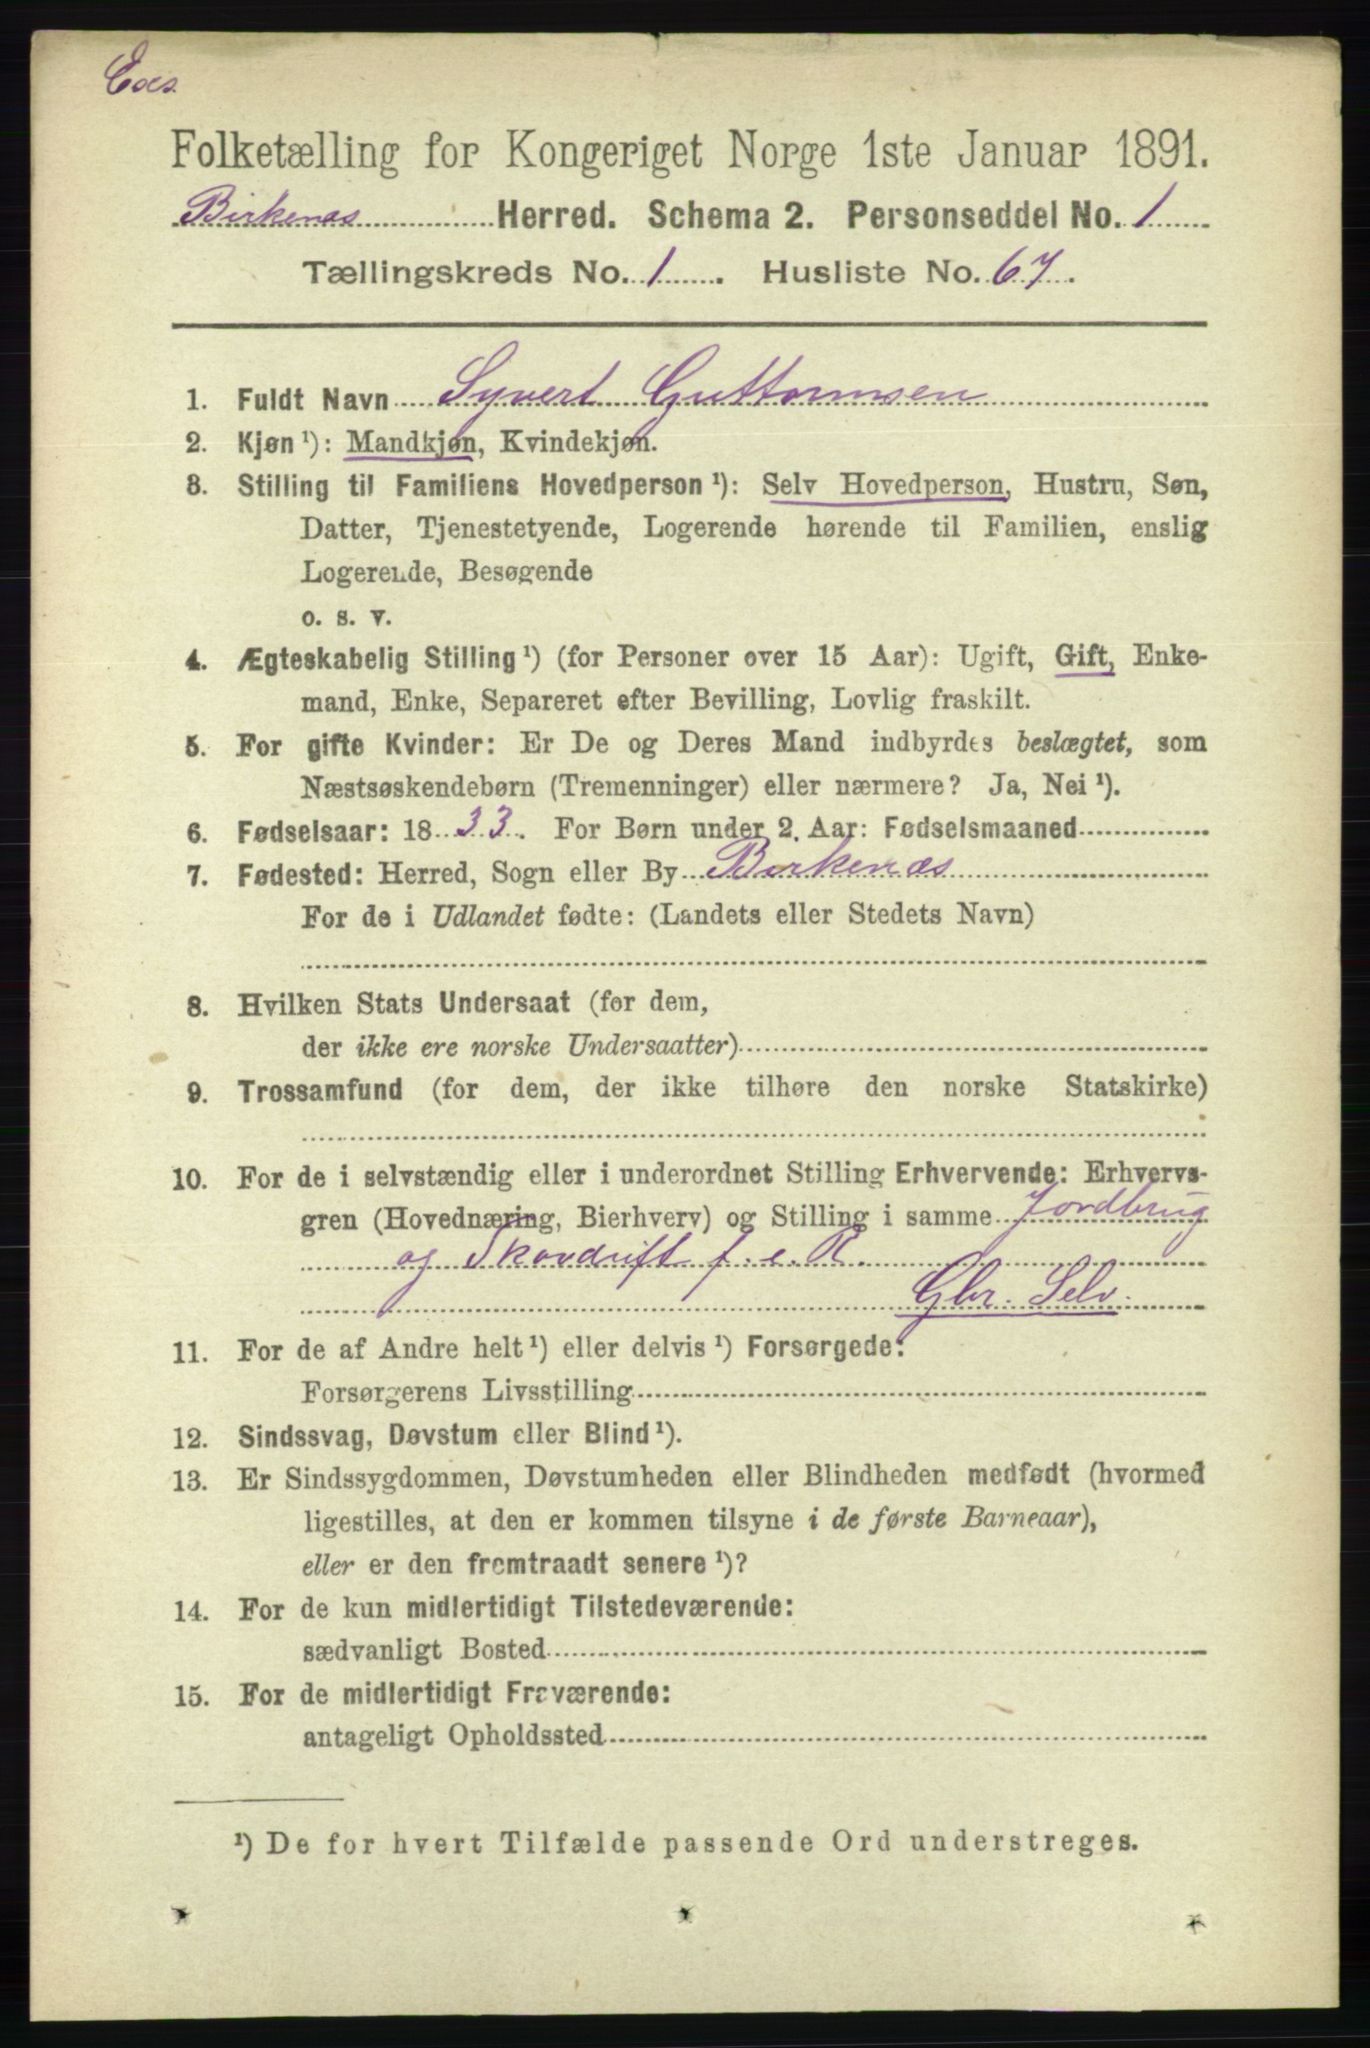 Folketælling for Kongeriget Norge 1ste Januar 1891.
Birkenæs Herred. Schema 2. Personseddel No. 1
Tællingskreds No. 1. Husliste No. 67.
1. Fuldt Navn Syvert Guttormsen
2. Kjøn ¹): Mandkjøn, Kvindekjøn.
3. Stilling til Familiens Hovedperson ¹): Selv Hovedperson, Hustru, Søn,
Datter, Tjenestetyende, Logerende hørende til Familien, enslig
Logerende, Besøgende
o. s. v.
4. Ægteskabelig Stilling ¹) (for Personer over 15 Aar): Ugift, Gift, Enke-
mand, Enke, Separeret efter Bevilling, Lovlig fraskilt.
5. For gifte Kvinder: Er De og Deres Mand indbyrdes beslægtet, som
Næstsøskendebørn (Tremenninger) eller nærmere? Ja, Nei ¹).
6. Fødselsaar: 1833. For Børn under 2 Aar: Fødselsmaaned
7. Fødested: Herred, Sogn eller By Birkenæs
For de i Udlandet fødte: (Landets eller Stedets Navn)
8. Hvilken Stats Undersaat (for dem,
der ikke ere norske Undersaatter)
9. Trossamfund (for dem, der ikke tilhøre den norske Statskirke)
10. For de i selvstændig eller i underordnet Stilling Erhvervende: Erhvervs-
gren (Hovednæring, Bierhverv) og Stilling i samme Jordbrug
og Skovdrift f. e. R.
Gbr. Selv.
11. For de af Andre helt ¹) eller delvis ¹) Forsørgede:
Forsørgerens Livsstilling
12. Sindssvag, Døvstum eller Blind ¹).
13. Er Sindssygdommen, Døvstumheden eller Blindheden medfødt (hvormed
ligestilles, at den er kommen tilsyne i de første Barneaar),
eller er den fremtraadt senere ¹)?
14. For de kun midlertidigt Tilstedeværende:
sædvanligt Bosted
15. For de midlertidigt Fraværende:
antageligt Opholdssted
¹) De for hvert Tilfælde passende Ord understreges.